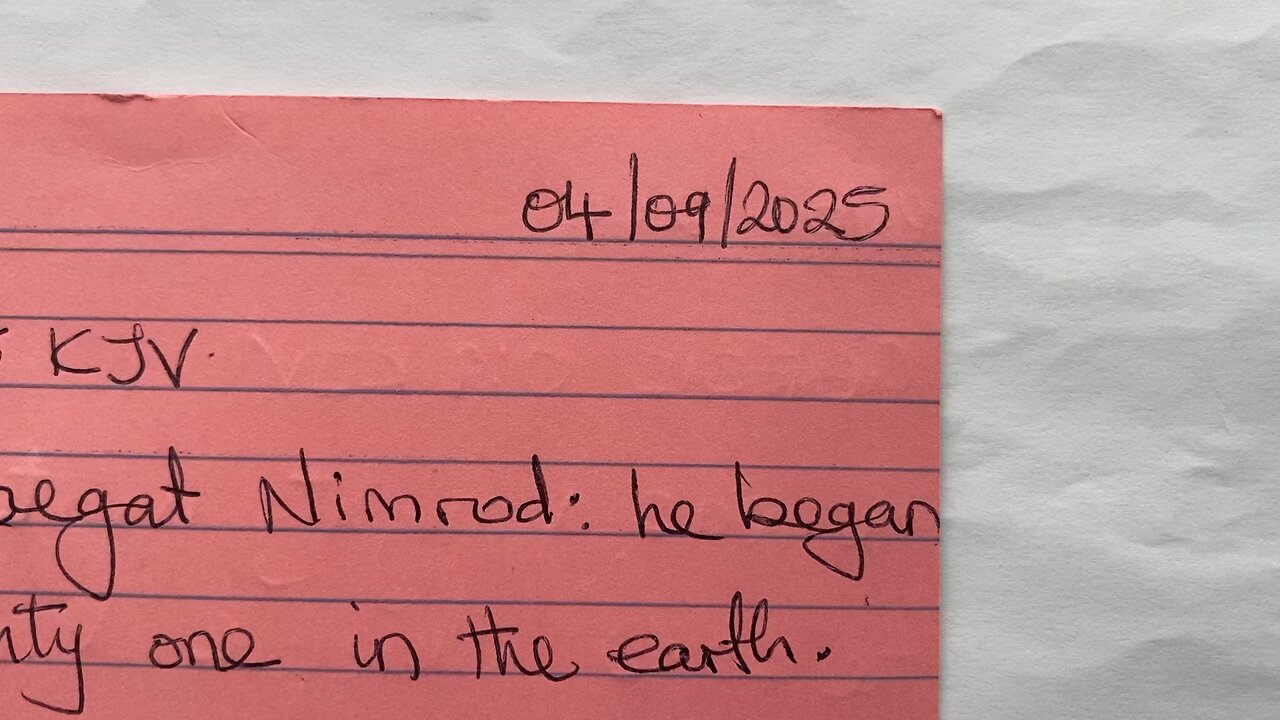 04/09/2025
KJV.
begat Nimrod: he began
one in the earth.